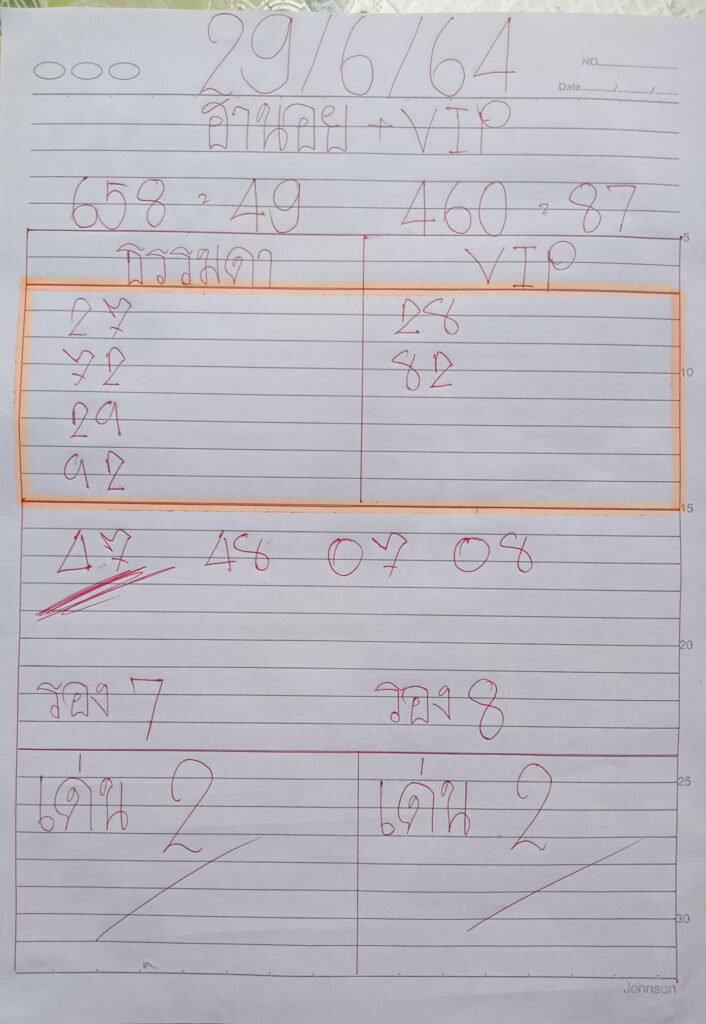 29/6/64
NO.
Date......../......../........
ฮานอย + VIP
658 = 49 460 = 87
5
ธรรมดา VIP
27 28
72 82
10
29
92
15
47 48 07 08
20
รอง 7 รอง 8
25
เด่น 2 เด่น 2
30
Johnson